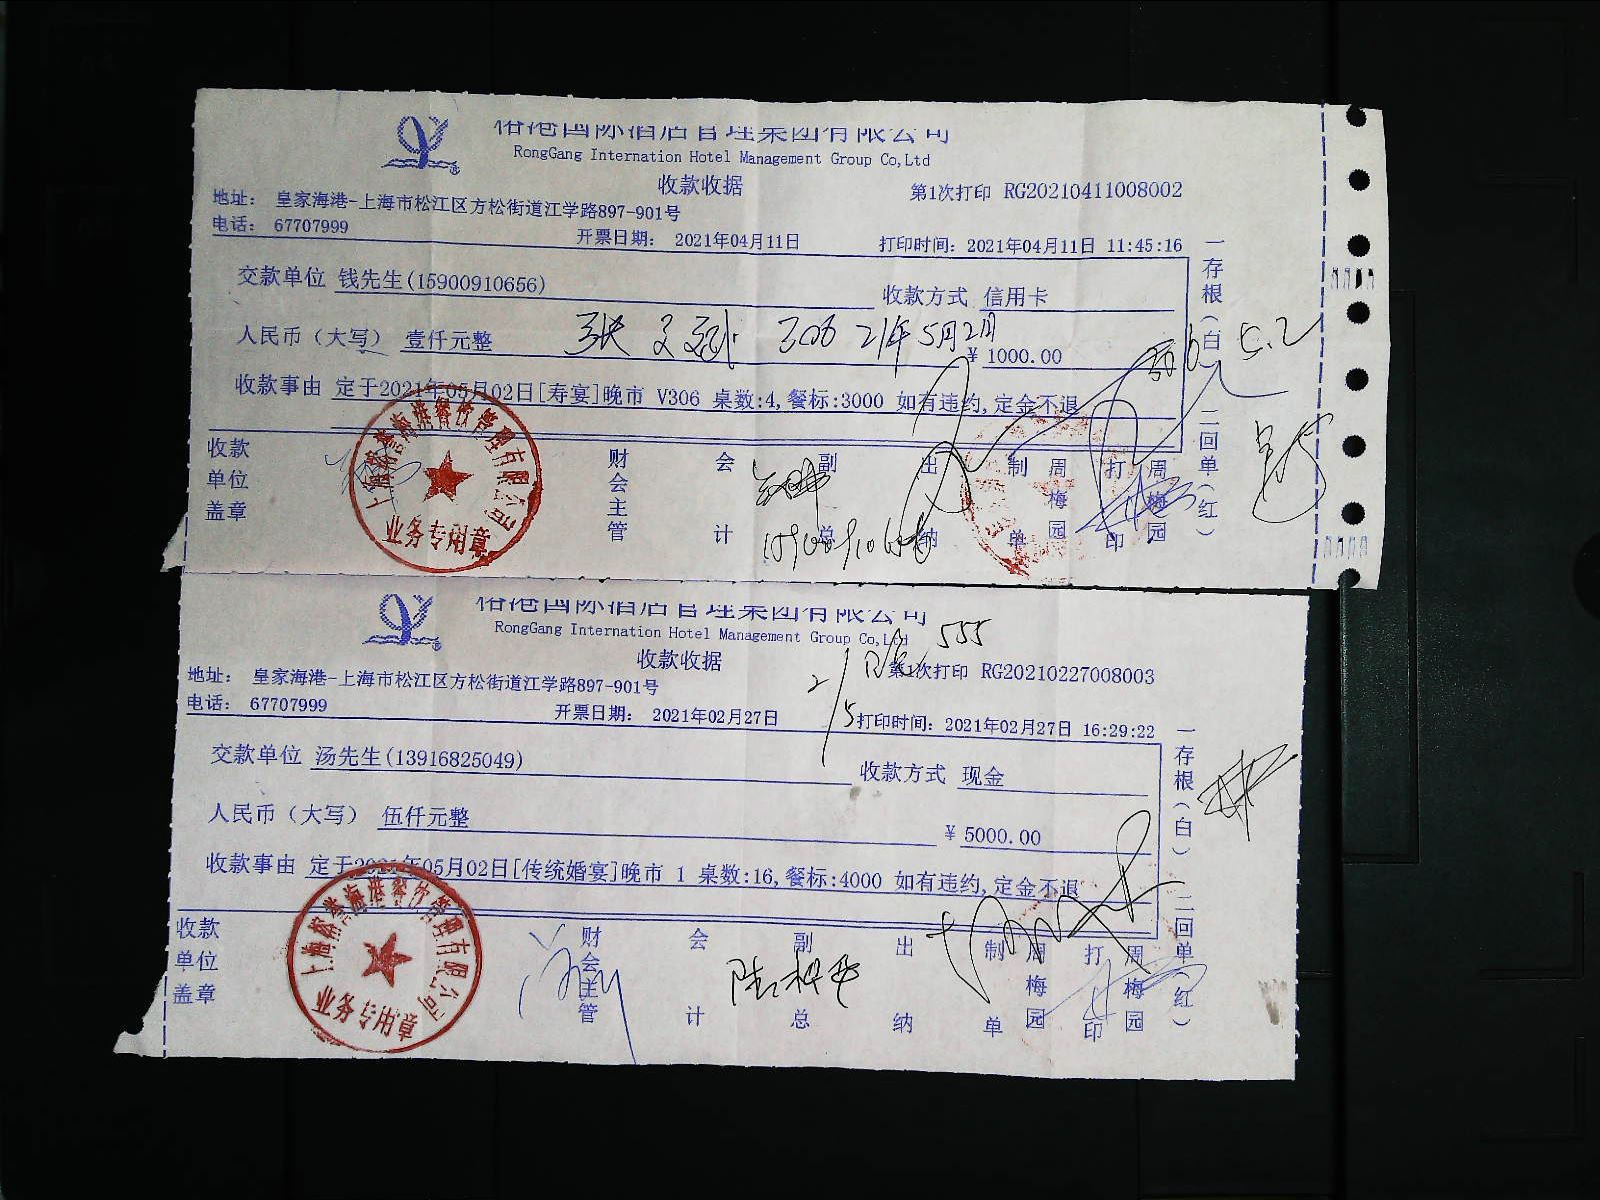 裕港国际酒店管理集团有限公司
RongGang Internation Hotel Management Group Co,Ltd
收款收据
第1次打印 RG20210411008002
地址： 皇家海港-上海市松江区方松街道江学路897-901号
电话： 67707999
开票日期： 2021年04月11日
打印时间：2021年04月11日 11:45:16
交款单位 钱先生(15900910656)
收款方式 信用卡
人民币（大写） 壹仟元整
21年5月2日
¥ 1000.00
5.2
收款事由 定于2021年05月02日[寿宴]晚市 V306 桌数:4,餐标:3000 如有违约,定金不退
一存根(白) 二回单(红)
收款单位盖章
财会主管
会计
副总
出纳
制单
周梅园
打印
周梅园
上海裕嵩海港餐饮管理有限公司
业务专用章
裕港国际酒店管理集团有限公司
RongGang Internation Hotel Management Group Co,Ltd
555
收款收据
第1次打印 RG20210227008003
地址： 皇家海港-上海市松江区方松街道江学路897-901号
电话： 67707999
开票日期： 2021年02月27日
打印时间：2021年02月27日 16:29:22
交款单位 汤先生(13916825049)
收款方式 现金
人民币（大写） 伍仟元整
¥ 5000.00
收款事由 定于2021年05月02日[传统婚宴]晚市 1 桌数:16,餐标:4000 如有违约,定金不退
一存根(白) 二回单(红)
收款单位盖章
财会主管
会计
副总
出纳
制单
周梅园
打印
周梅园
上海裕嵩海港餐饮管理有限公司
业务专用章